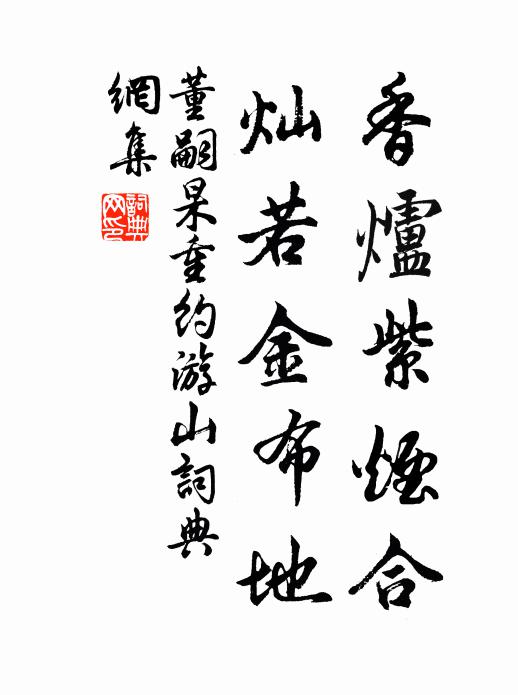 香爐紫煙合
灿若金布地
董嗣杲重約游山詞典
網集
詞典網印